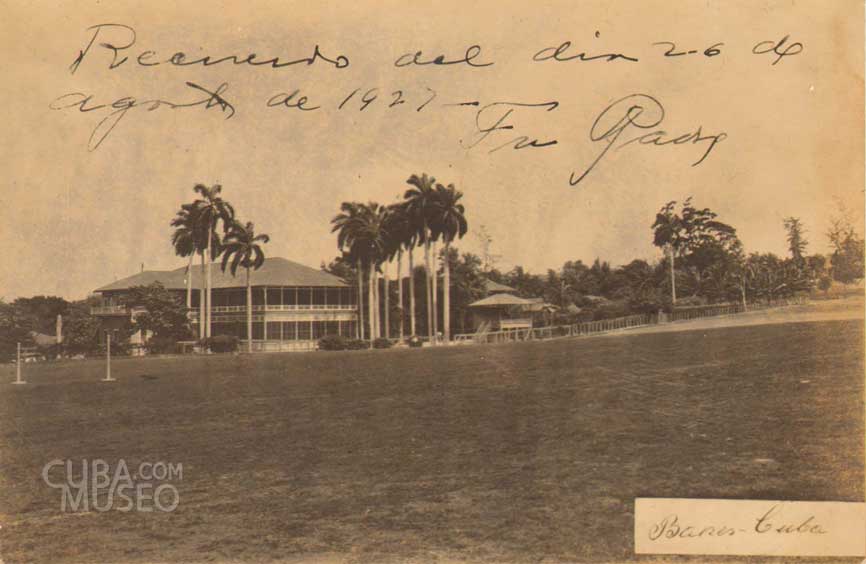 Recuerdo del dia 26 de
agosto de 1927 – Tu Padre
CUBA.COM
MUSEO
Banes-Cuba